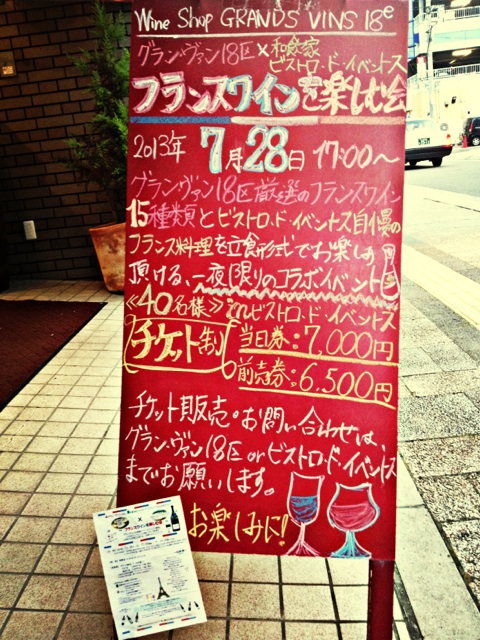 Wine Shop GRANDS VINS 18e
グラン・ヴァン18区×和食家
ビストロ・ド・イベントス
フランスワインを楽しむ会
2013年 7月28日 17:00～
グラン・ヴァン18区厳選のフランスワイン
15種類とビストロ・ド・イベントス自慢の
フランス料理を立食形式でお楽しみ
頂ける、一夜限りのコラボイベント
《40名様》 ビストロ・ド・イベントス
チケット制
当日券：7,000円
前売券：6,500円
チケット販売・お問い合わせは、
グラン・ヴァン18区 or ビストロ・ド・イベントス
までお願いします。
お楽しみに！
フランスワインを楽しむ会